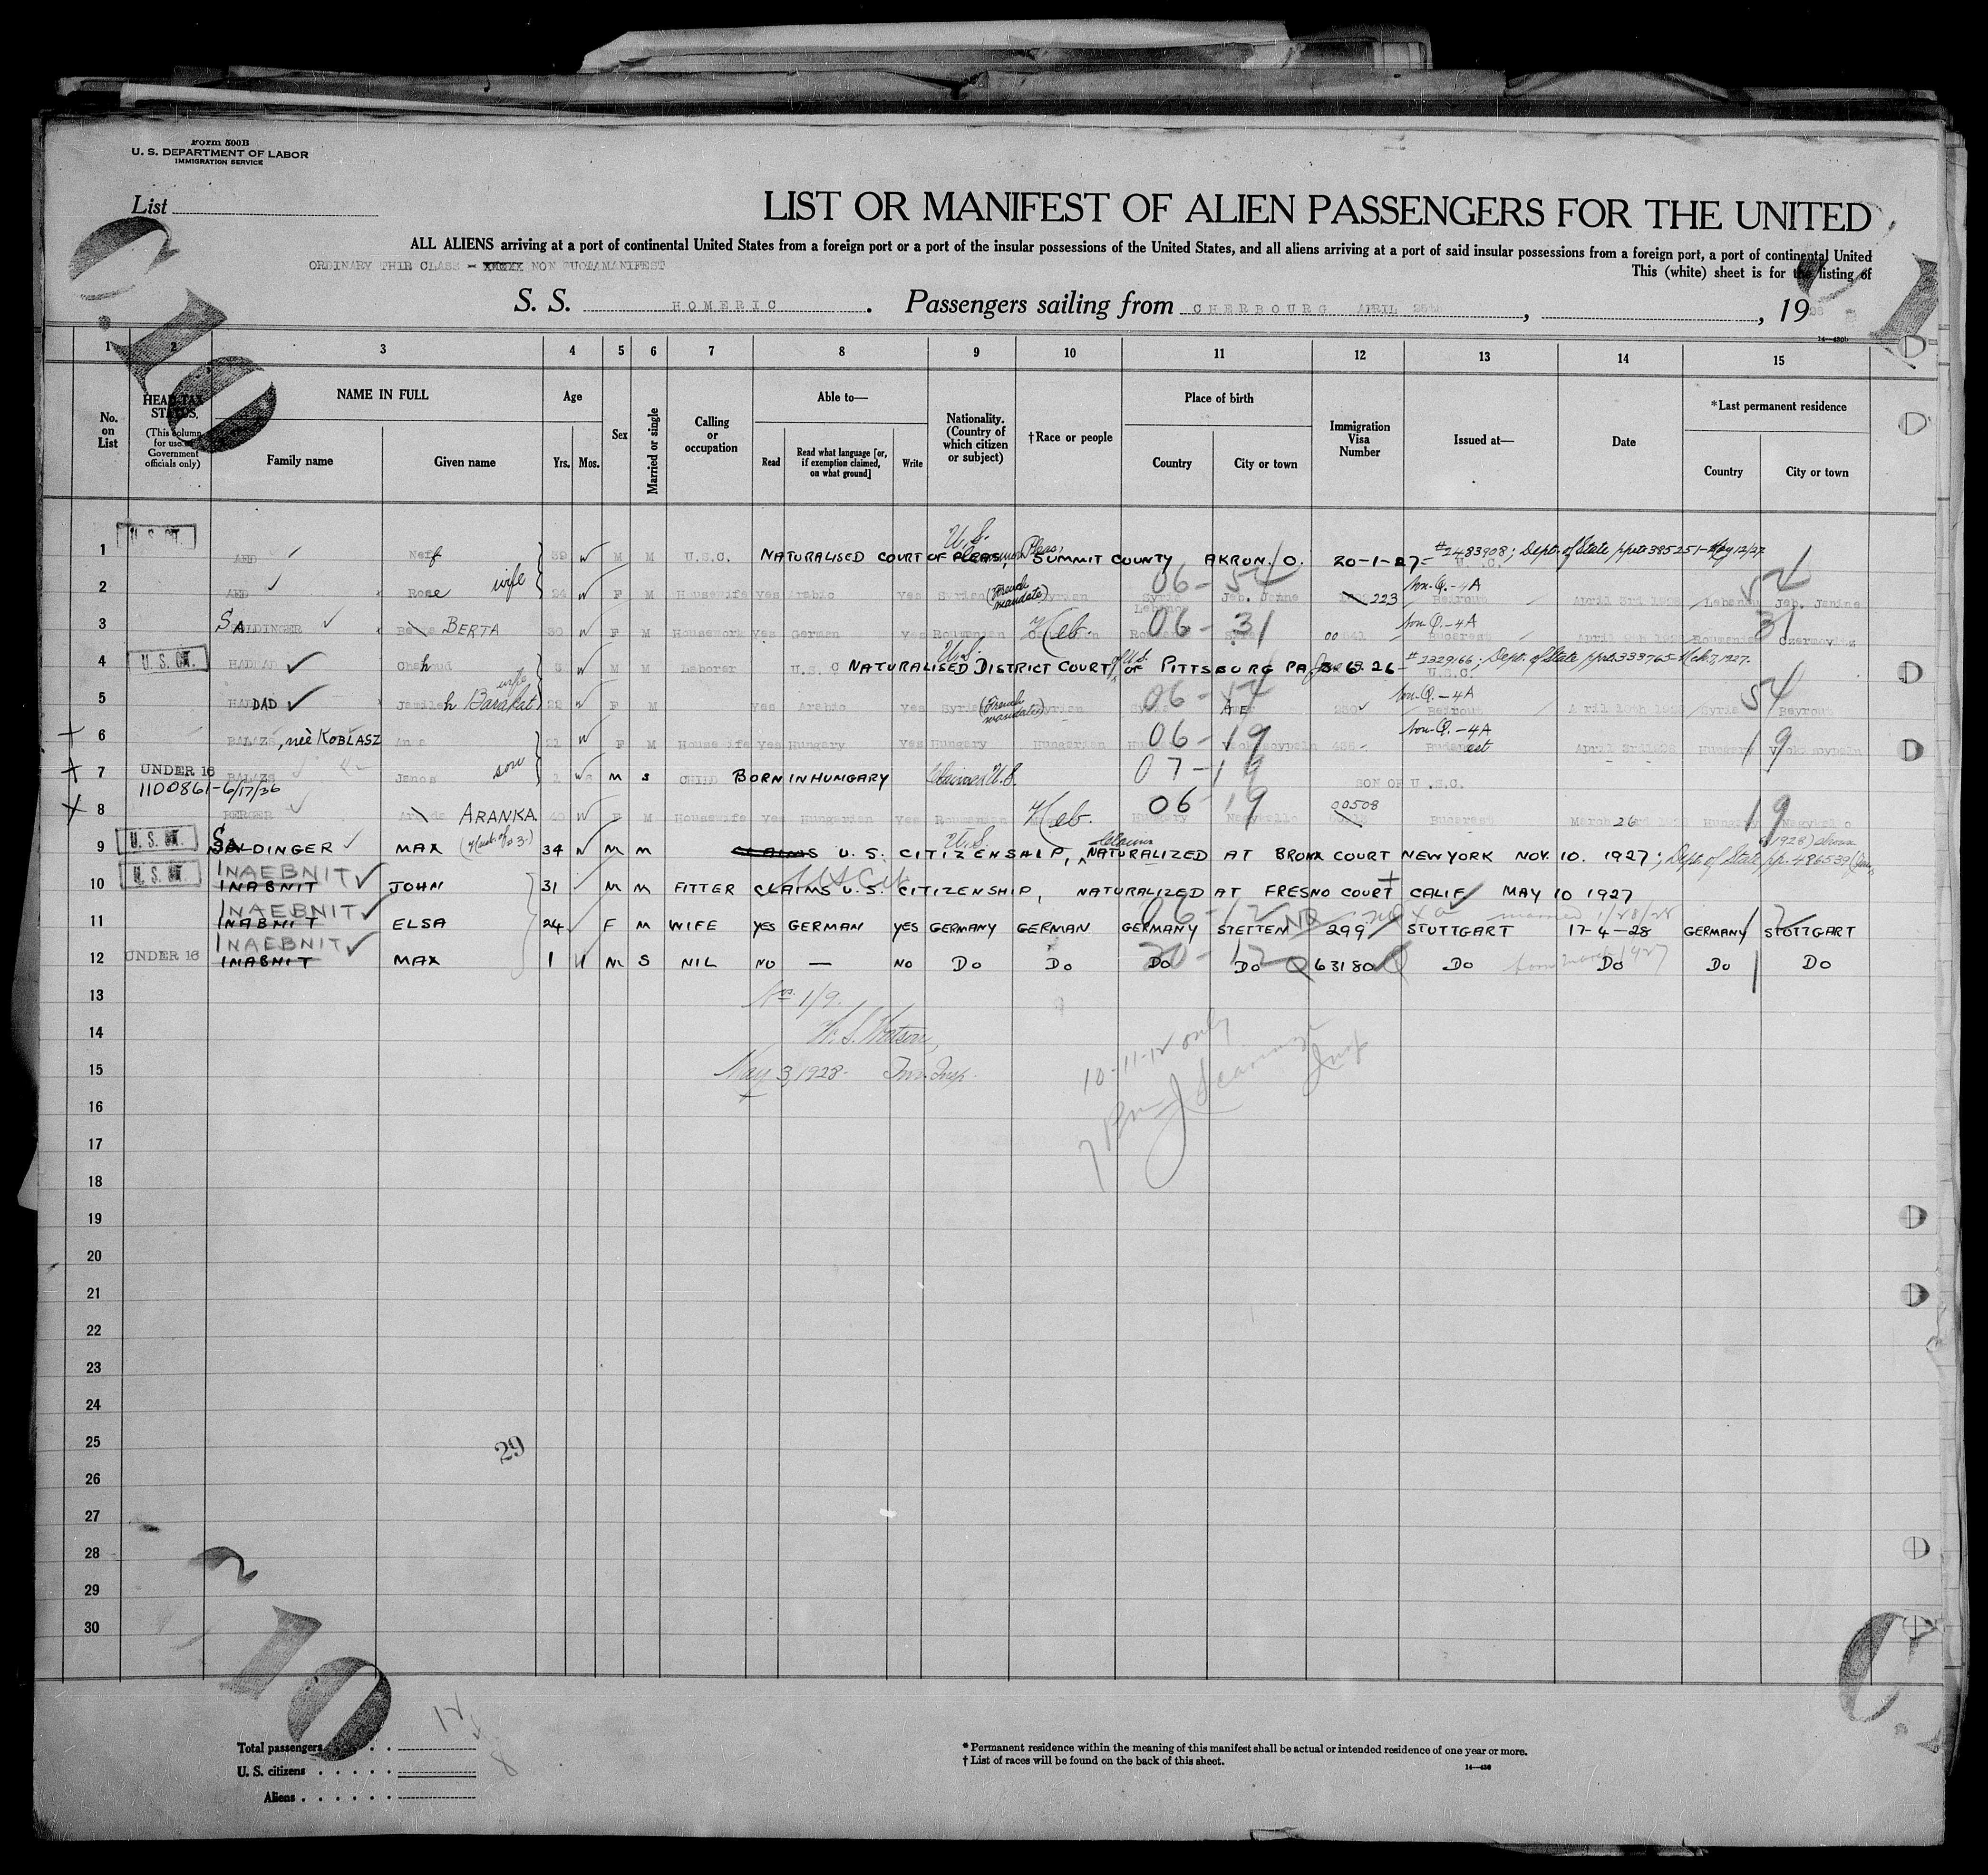 Form 500B
U. S. DEPARTMENT OF LABOR
IMMIGRATION SERVICE
List
LIST OR MANIFEST OF ALIEN PASSENGERS FOR THE UNITED
ALL ALIENS arriving at a port of continental United States from a foreign port or a port of the insular possessions of the United States, and all aliens arriving at a port of said insular possessions from a foreign port, a port of continental United
ORDINARY THIR CLASS - NON QUOTAMANIFEST
This (white) sheet is for the listing of
S. S. HOMERIC . Passengers sailing from CHERBOURG APRIL 25th , , 1928
14—430b
1 2 3 4 5 6 7 8 9 10 11 12 13 14 15
No. on List
HEAD-TAX STATUS. (This column for use of Government officials only)
NAME IN FULL Family name Given name
Age Yrs. Mos.
Sex
Married or single
Calling or occupation
Able to— Read Read what language [or, if exemption claimed, on what ground] Write
Nationality. (Country of which citizen or subject)
†Race or people
Place of birth Country City or town
Immigration Visa Number
Issued at—
Date
*Last permanent residence Country City or town
1 U. S. CT. AED Neff 39 M M U.S.C. U.S. NATURALISED COURT OF PLEAS, Common Pleas, SUMMIT COUNTY AKRON. O. 20-1-27- #2483908; Dept. of State ppt 385251-May 12/27
2 AED Rose wife 24 F M Housewife Yes Arabic Yes Syrian (French mandate) Syrian Syria Lebanon 06-54 Jeb. Janine 223 Non-Q.-4A Beirout April 3rd 1928 Lebanon Jeb. Janine 54
3 SALDINGER BERTA 30 F M Housework Yes German Yes Roumanian Heb. 06-31 Non-Q.-4A Bucarest April 9th 1928 Roumania Czernovitz 31
4 U. S. CT. HADDAD Chahoud M M Laborer U.S.C U.S. NATURALISED DISTRICT COURT OF U.S. OF PITTSBURG PA. 3-6-26- #2329166; Dept. of State ppt 333765-Mch 7, 1927. U.S.C.
5 HADDAD Jamileh Barakat wife 22 F M Yes Arabic Yes Syria (French mandate) Syrian 06-54 230 Non-Q.-4A Beirout April 10th 1928 Syria Beyrout 54
6 BALAZS, neè KOBLASZ Anna 21 F M Housewife Yes Hungary Yes Hungary Hungarian 06-19 Non-Q.-4A Budapest April 3rd 1928 Hungary 19
7 UNDER 16 BALAZS Janos son 1 M S CHILD BORN IN HUNGARY Claims U.S. 07-19 SON OF U.S.C.
1100861-6/17/36
8 BERGER ARANKA 40 F M Housewife Yes Hungarian Yes Roumanian Heb. 06-19 Hungary Nagykallo 00508 Bucarest March 26 1928 Hungary Nagykallo 19
9 U. S. CT. SALDINGER MAX (Husb. of #3-) 34 M M U.S. CLAIMS U. S. CITIZENSHIP, Claims NATURALIZED AT BRONX COURT NEW YORK NOV. 10. 1927; Dept. of State pp. 486539
10 U. S. CT. INAEBNIT INABNIT JOHN 31 M M FITTER CLAIMS U.S. CITIZENSHIP, NATURALIZED AT FRESNO COURT CALIF MAY 10 1927
11 INAEBNIT INABNIT ELSA 24 F M WIFE YES GERMAN YES GERMANY GERMAN GERMANY 06-12 STETTEN NQ 299 STUTTGART married 1/28/28 17-4-28 GERMANY STUTTGART
12 UNDER 16 INAEBNIT INABNIT MAX 1 M S NIL NO — NO DO DO DO 20-12 DO Q 63180 DO DO DO DO
13 Nos. 1/9.
14 W. S. Watson,
15 May 3, 1928- Imm. Insp.
10-11-12 only
Insp
16
17
18
19
20
21
22
23
24
25
29
26
27
28
29
30
2
10
12
4
8
Total passengers
U. S. citizens
Aliens
* Permanent residence within the meaning of this manifest shall be actual or intended residence of one year or more.
† List of races will be found on the back of this sheet.
14—430